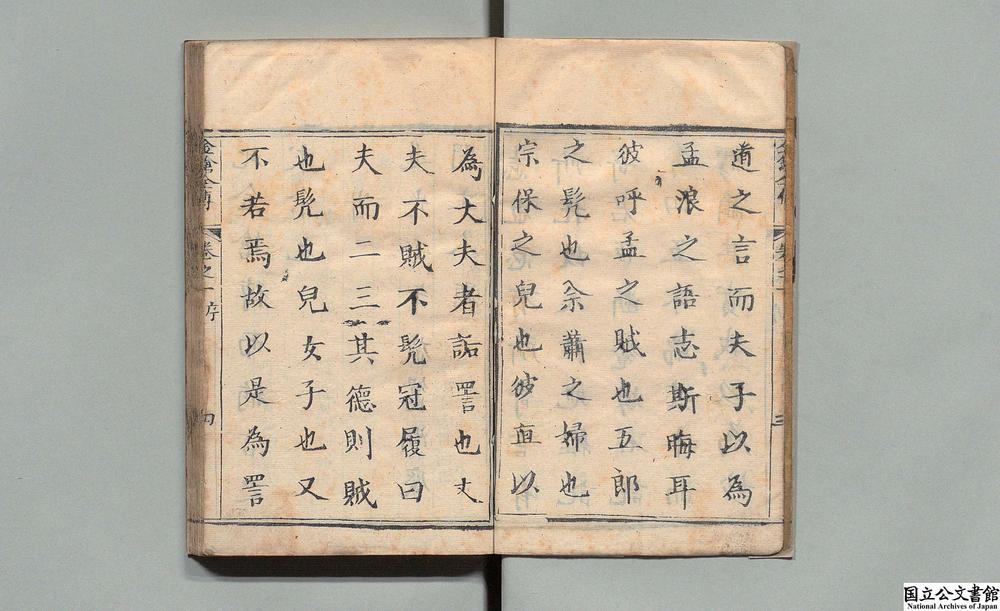 道之言而夫子以為
孟浪之語志斯晦耳
彼呼孟之賊也五郎
之髡也余蕭之婦也
宗保之兒也彼直以
為大夫者詬詈也丈
夫不賊不髡冠履曰
夫而二三其德則賊
也髡也兒女子也又
不若焉故以是為詈
卷之一 序
国立公文書館
National Archives of Japan